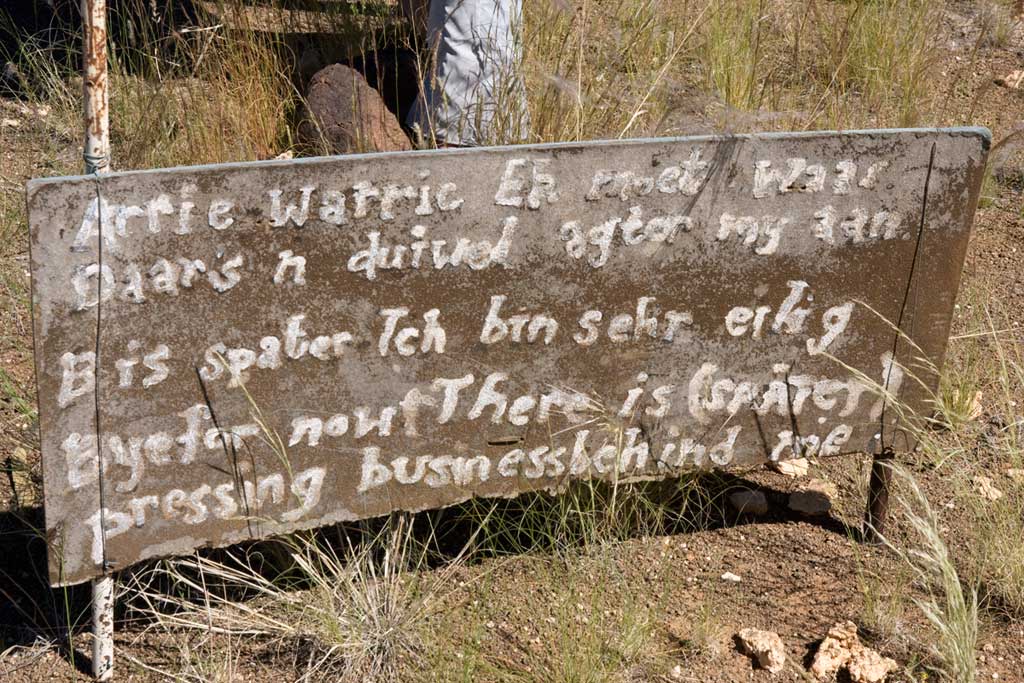 Arrie Warric En moet waai
Daar's n duiwel agter my aan
B is spater Ich bin sehr eilig
now There is (später)
pressing businessbehind me.